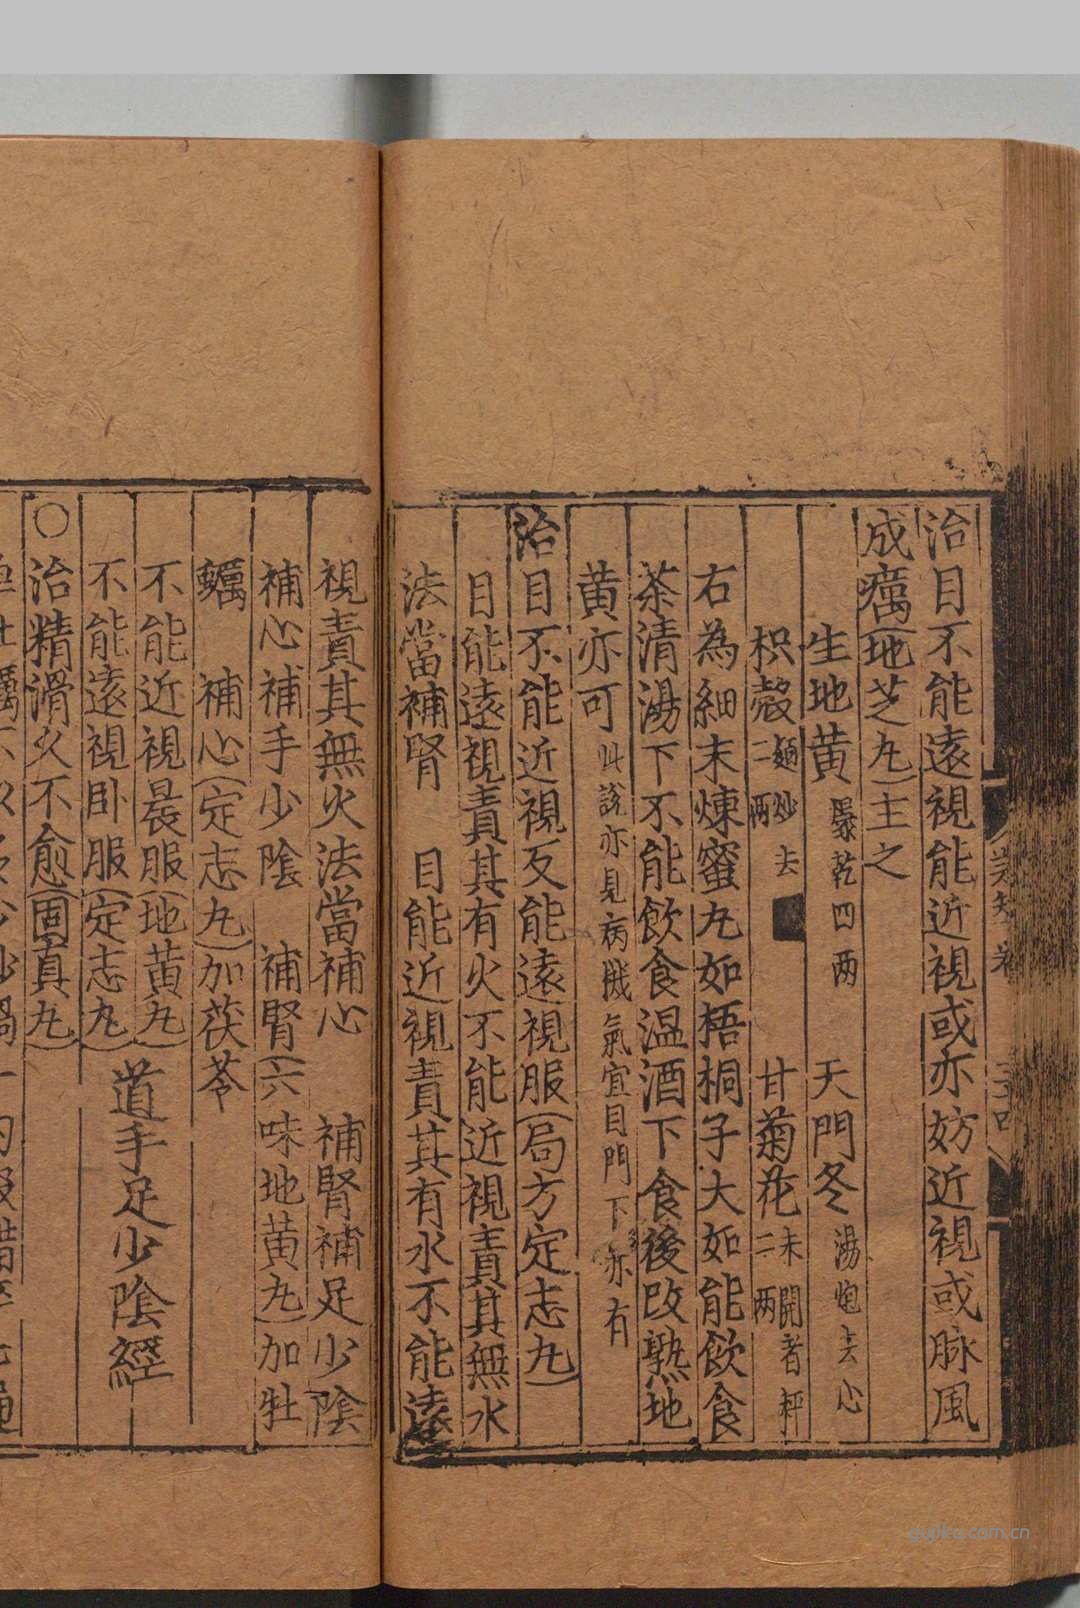 治目不能遠視能近視或亦妨近視或脉風
成癘地芝丸主之
生地黄𣋴乾四两　天門冬湯炮去心
枳殻麺炒去二两　甘菊花未開者秤二两
右為細末煉蜜丸如梧桐子大如能飲食
茶清湯下不能飲食温酒下食後改熟地
黄亦可此說亦見病機氣宜目門下亦有
治目不能近視反能遠視服局方定志丸
目能遠視責其有火不能近視責其無水
法當補腎　目能近視責其有水不能遠
視責其無火法當補心　補腎補足少隂
補心補手少隂　補腎六味地黄丸加牡
蠣　補心定志丸加茯苓
不能近視晨服地黄丸
不能遠視卧服定志丸
道手足少隂經
○治精滑久不愈固真丸
gujika.com.cn